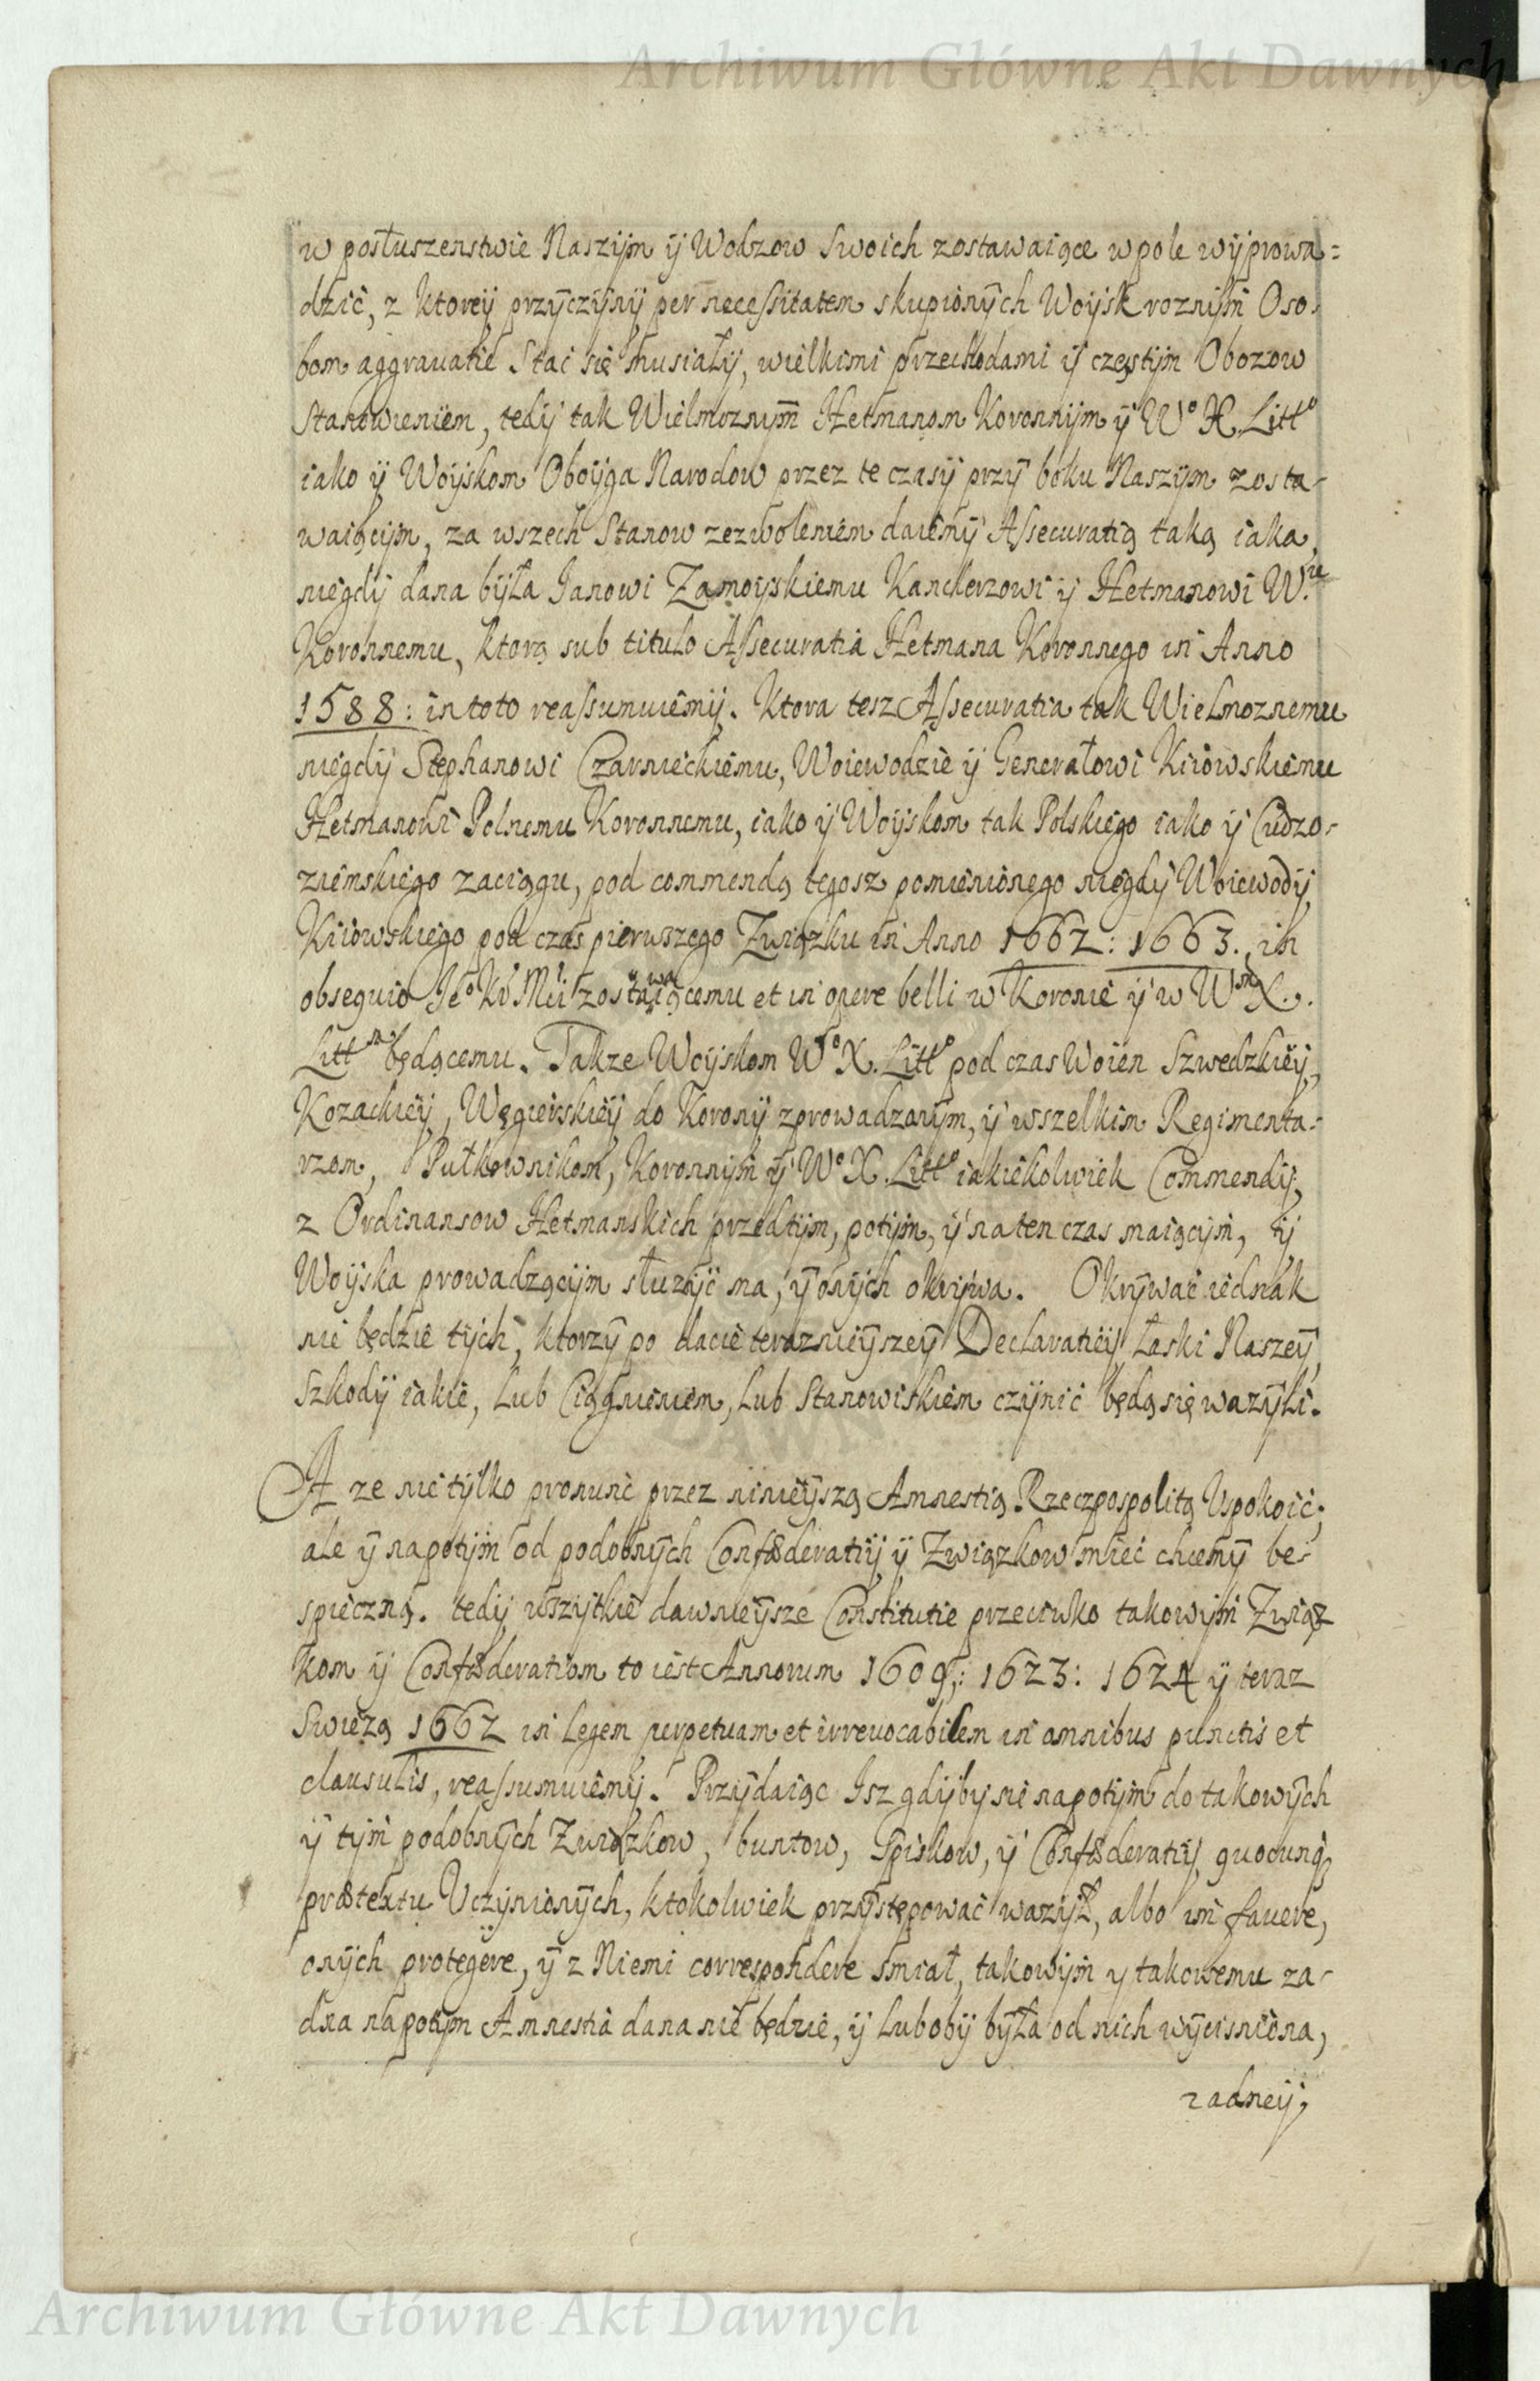 Archiwum Główne Akt Dawnych
w posłuszenstwie Naszÿm ÿ Wodzow Swoich zostawaiące w pole wÿprowa=
dzić, z ktoreÿ przÿczÿnÿ per necessitatem skupionÿch Woÿsk roznÿm Oso-
bom aggrauatie Stac się musiałÿ, wielkimi przechodami ÿ częstÿm Obozow
Stanowieniem, tedÿ tak Wielmoznÿm Hetmanom Koronnÿm ÿ Wᵒ X Littᵒ
iako ÿ Woÿskom Oboÿga Narodow przez te czasÿ przÿ boku Naszÿm zosta-
waiącÿm, za wszech Stanow zezwoleniem daiemÿ Assecuratią taką iaka,
niegdÿ dana bÿła Janowi Zamoÿskiemu Kanclerzowi ÿ Hetmanowi W.ᵘ
Koronnemu, ktorą sub titulo Assecuratia Hetmana Koronnego in Anno
1588: in toto reassumuiemÿ. Ktora tesz Assecuratia tak Wielmoznemu
niegdÿ Stephanowi Czarnieckiemu, Woiewodzie ÿ Generałowi Kiiowskiemu
Hetmanowi Polnemu Koronnemu, iako ÿ Woÿskom tak Polskiego iako ÿ Cudzo-
ziemskiego zaciągu, pod commendą tegosz pomienionego niegdÿ Woiewodÿ
Kiiowskiego pod czas pierwszego Związku in Anno 1662: 1663. in
obsequio Jeᵒ Kr Mći zostawaiącemu et in opere belli w Koronie ÿ w Wᵐ X.
Littᵐ będącemu. Takze Woÿskom Wᵒ X. Littᵒ pod czas Woien Szwedzkieÿ,
Kozackieÿ, Węgierskieÿ do Koronÿ zprowadzonÿm, ÿ wszelkim Regimenta-
rzom, Pułkownikom, Koronnÿm ÿ Wᵒ X. Littᵒ iakiekolwiek Commendÿ,
z Ordinansow Hetmanskich przedtÿm, potÿm, ÿ na ten czas maiącÿm, ÿ
Woÿska prowadzącÿm słuzÿć ma, ÿ onÿch okrÿwa. Okrÿwać iednak
nie będzie tÿch, ktorzÿ po dacie teraznieÿszeÿ Declaratieÿ Łaski Naszeÿ,
Szkodÿ iakie, lub Ciągnieniem, lub Stanowiskiem czÿnić będą się wazÿli.
A ze nie tÿlko pronunc przez ninieÿszą Amnestią Rzeczpospolitą Uspokoić;
ale ÿ napotÿm od podobnÿch Confœderatiÿ ÿ Związkow mieć chcemÿ be-
spieczną. tedÿ wszÿtkie dawnieÿsze Constitutie przeciwko takowÿm Związ
kom ÿ Confœderatiom to iest Annorum 1609: 1623: 1624 ÿ teraz
Swiezą 1662 in legem perpetuam et irreuocabilem in omnibus punctis et
clausulis, reassumuiemÿ. Przÿdaiąc Isz gdÿbÿ się napotÿm do takowÿch
ÿ tÿm podobnÿch Związkow, buntow, Spiskow, ÿ Confœderatiÿ, quocunq
prætextu Uczÿnionÿch, ktokolwiek przÿstępować wazÿł, albo im fauere,
onÿch protegere, ÿ z Niemi correspondere smiał, takowÿm y takowemu za-
dna napotÿm Amnestia dana nie będzie, ÿ lubobÿ bÿła od nich wÿcisniona,
zadneÿ,
Archiwum Główne Akt Dawnych